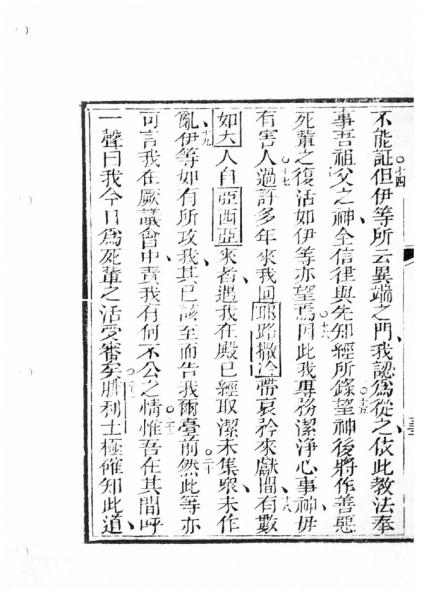 不能証但伊等所云異端之門我認爲從之依此教法奉
事吾祖父之神全信律與先知經所錄望神後將作善惡
死輩之復活如伊等亦望焉因此我專務潔淨心事神毋
有害人過許多年來我回耶路撒冷帶哀矜來獻間有數
如大人自亞西亞來者遇我在殿已經取潔未集衆未作
亂伊等如有所攻我其已該至而告我爾臺前然此等亦
可言我在厥議會中責我有何不公之情惟吾在其間呼
一聲曰我今日爲死輩之活受審矣勝利士極確知此道